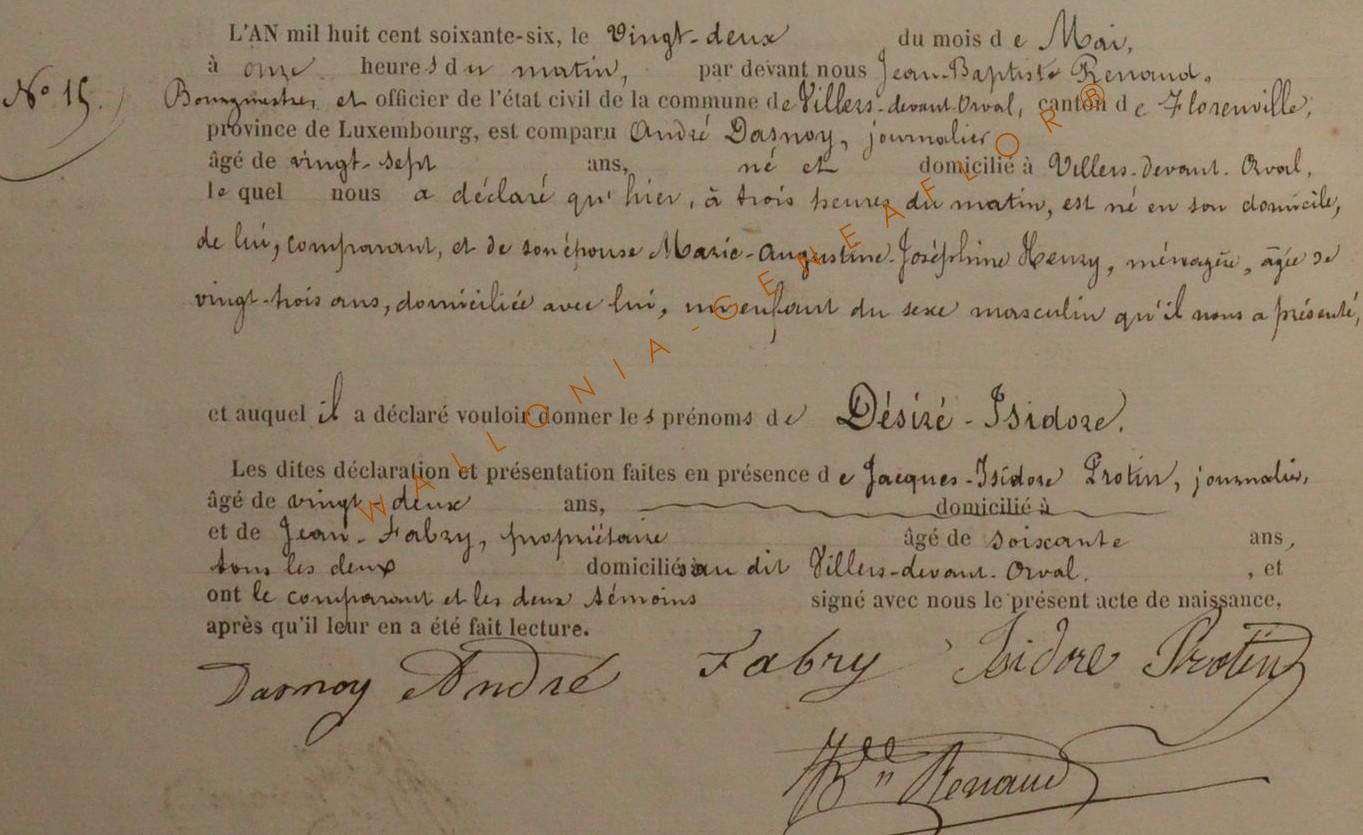 L'AN mil huit cent soixante-six, le Vingt-deux du mois de Mai,
à onze heures du matin, par devant nous Jean-Baptiste Renaud,
N° 15. Bourgmestre, et officier de l'état civil de la commune de Villers-devant-Orval, canton de Florenville,
province de Luxembourg, est comparu André Dasnoy, journalier
âgé de vingt-sept ans, né et domicilié à Villers-devant-Orval,
lequel nous a déclaré qu'hier, à trois heures du matin, est né en son domicile,
de lui, comparant, et de son épouse Marie-Augustine-Joséphine Henry, ménagère, âgée de
vingt-trois ans, domiciliée avec lui, un enfant du sexe masculin qu'il nous a présenté,
et auquel il a déclaré vouloir donner les prénoms de Désiré-Isidore.
Les dites déclaration et présentation faites en présence de Jacques-Isidore Protin, journalier,
âgé de vingt-deux ans, domicilié à
et de Jean-Fabry, propriétaire âgé de soixante ans,
tous les deux domiciliés au dit Villers-devant-Orval. , et
ont le comparant et les deux témoins signé avec nous le présent acte de naissance,
après qu'il leur en a été fait lecture.
Dasnoy André Fabry Isidore Protin
Renaud
WALLONIA-GENEAFLOR®